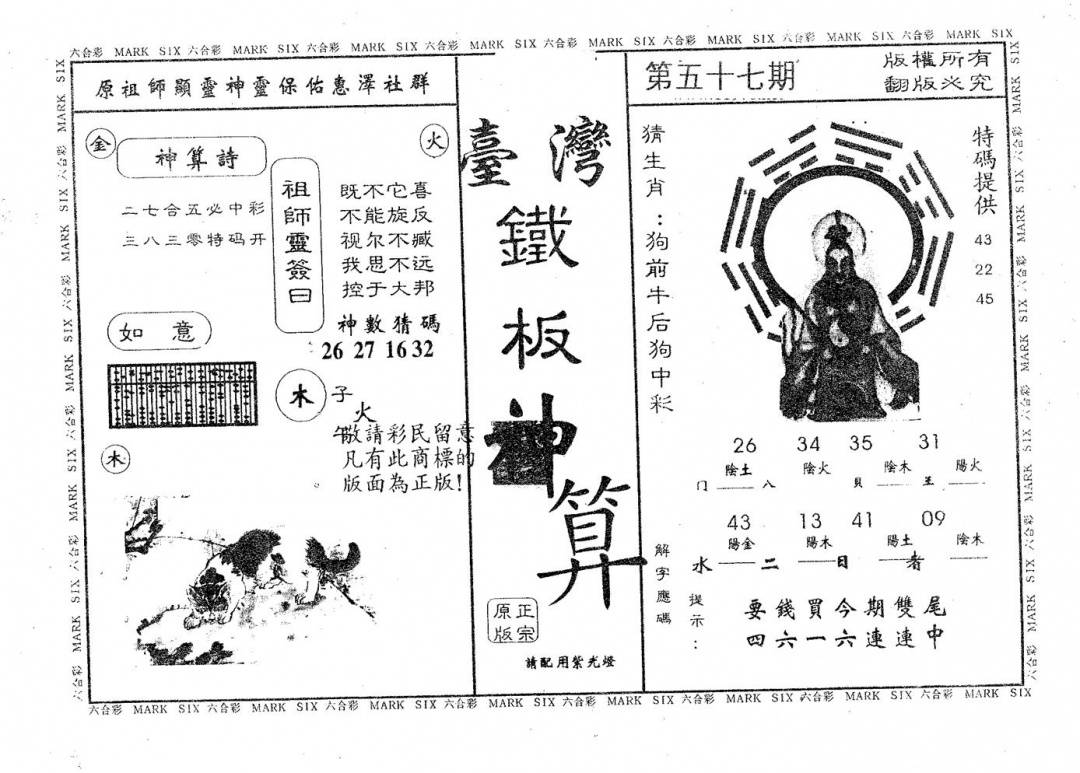 六合彩 MARK SIX 六合彩 MARK SIX 六合彩 MARK SIX 六合彩 MARK SIX 六合彩 MARK SIX 六合彩 MARK SIX 六合彩 MARK SIX 六合彩 MARK SIX
原祖師顯靈神靈保佑惠澤社群
金
火
神算詩
二七合五必中彩
三八三零特码开
祖師靈簽曰
既不它喜
不能旋反
视尔不臧
我思不远
控于大邦
神數猜碼
26 27 16 32
如意
木
子
火
午
敬請彩民留意
凡有此商標的
版面為正版!
木
臺灣
鐵
板
神
算
正宗
原版
請配用紫光燈
第五十七期
版權所有
翻版必究
猜生肖:狗前牛后狗中彩
特碼提供
43
22
45
26 34 35 31
陰土 陰火 陰木 陽火
门 八 貝 王
43 13 41 09
陽金 陽木 陽土 陰木
水 二 日 者
解字應碼
提示:
要錢買今期雙尾
四六一六連連中
六合彩 MARK SIX 六合彩 MARK SIX 六合彩 MARK SIX 六合彩 MARK SIX 六合彩 MARK SIX 六合彩 MARK SIX 六合彩 MARK SIX 六合彩 MARK SIX